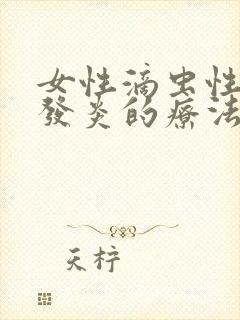 女性滴虫性
發炎的療法
天梓